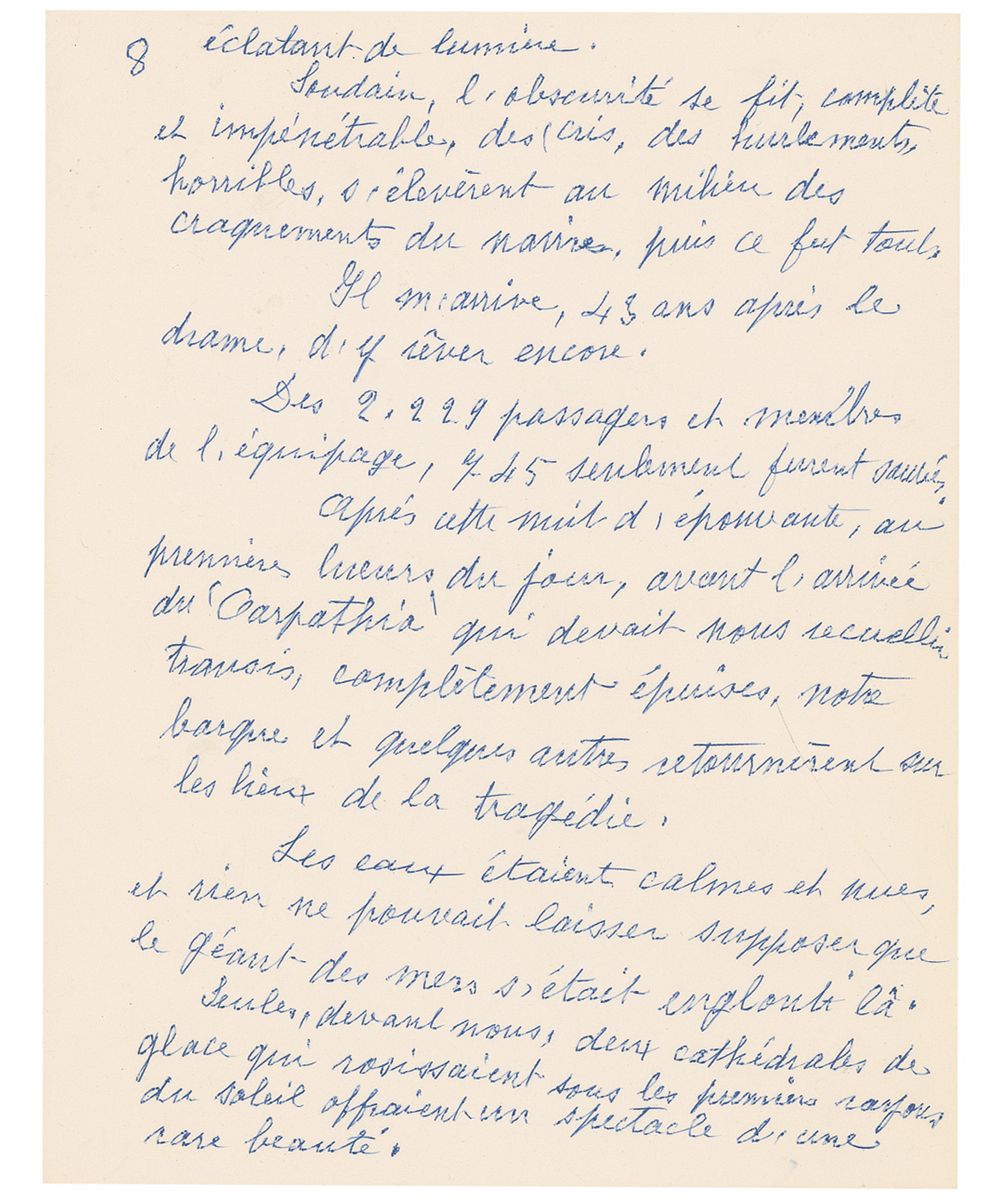 8 éclatant de lumière.
Soudain, l'obscurité se fit, complète
et impénétrable, des cris, des hurlements
horribles, s'élevèrent au milieu des
craquements du navire, puis ce fut tout.
Il m'arrive, 43 ans après le
drame, d'y rêver encore.
Des 2.229 passagers et membres
de l'équipage, 745 seulement furent sauvés.
Après cette nuit d'épouvante, au
premières lueurs du jour, avant l'arrivée
du "Carpathia" qui devait nous recueillir
transis, complètement épuisés, notre
barque et quelques autres retournèrent sur
les lieux de la tragédie.
Les eaux étaient calmes et nues,
et rien ne pouvait laisser supposer que
le géant des mers s'était englouti là.
Seules, devant nous, deux cathédrales de
glace qui rosissaient sous les premiers rayons
du soleil offraient un spectacle d'une
rare beauté.